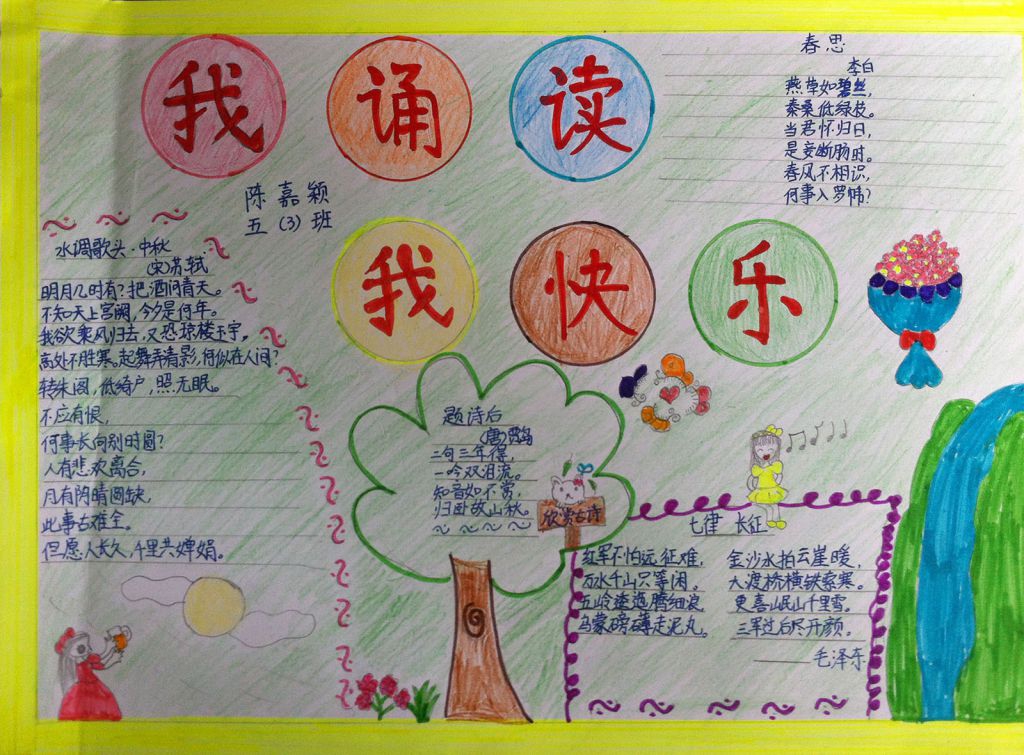 我诵读
我快乐
陈嘉颖
五（3）班
春思
李白
燕草如碧丝，
秦桑低绿枝。
当君怀归日，
是妾断肠时。
春风不相识，
何事入罗帏？
水调歌头·中秋
（宋）苏轼
明月几时有？把酒问青天。
不知天上宫阙，今夕是何年。
我欲乘风归去，又恐琼楼玉宇，
高处不胜寒。起舞弄清影，何似在人间？
转朱阁，低绮户，照无眠。
不应有恨，
何事长向别时圆？
人有悲欢离合，
月有阴晴圆缺，
此事古难全。
但愿人长久，千里共婵娟。
题诗后
（唐）贾岛
二句三年得，
一吟双泪流。
知音如不赏，
归卧故山秋。
欣赏古诗
七律 长征
红军不怕远征难，
万水千山只等闲。
五岭逶迤腾细浪，
乌蒙磅礴走泥丸。
金沙水拍云崖暖，
大渡桥横铁索寒。
更喜岷山千里雪。
三军过后尽开颜。
——毛泽东